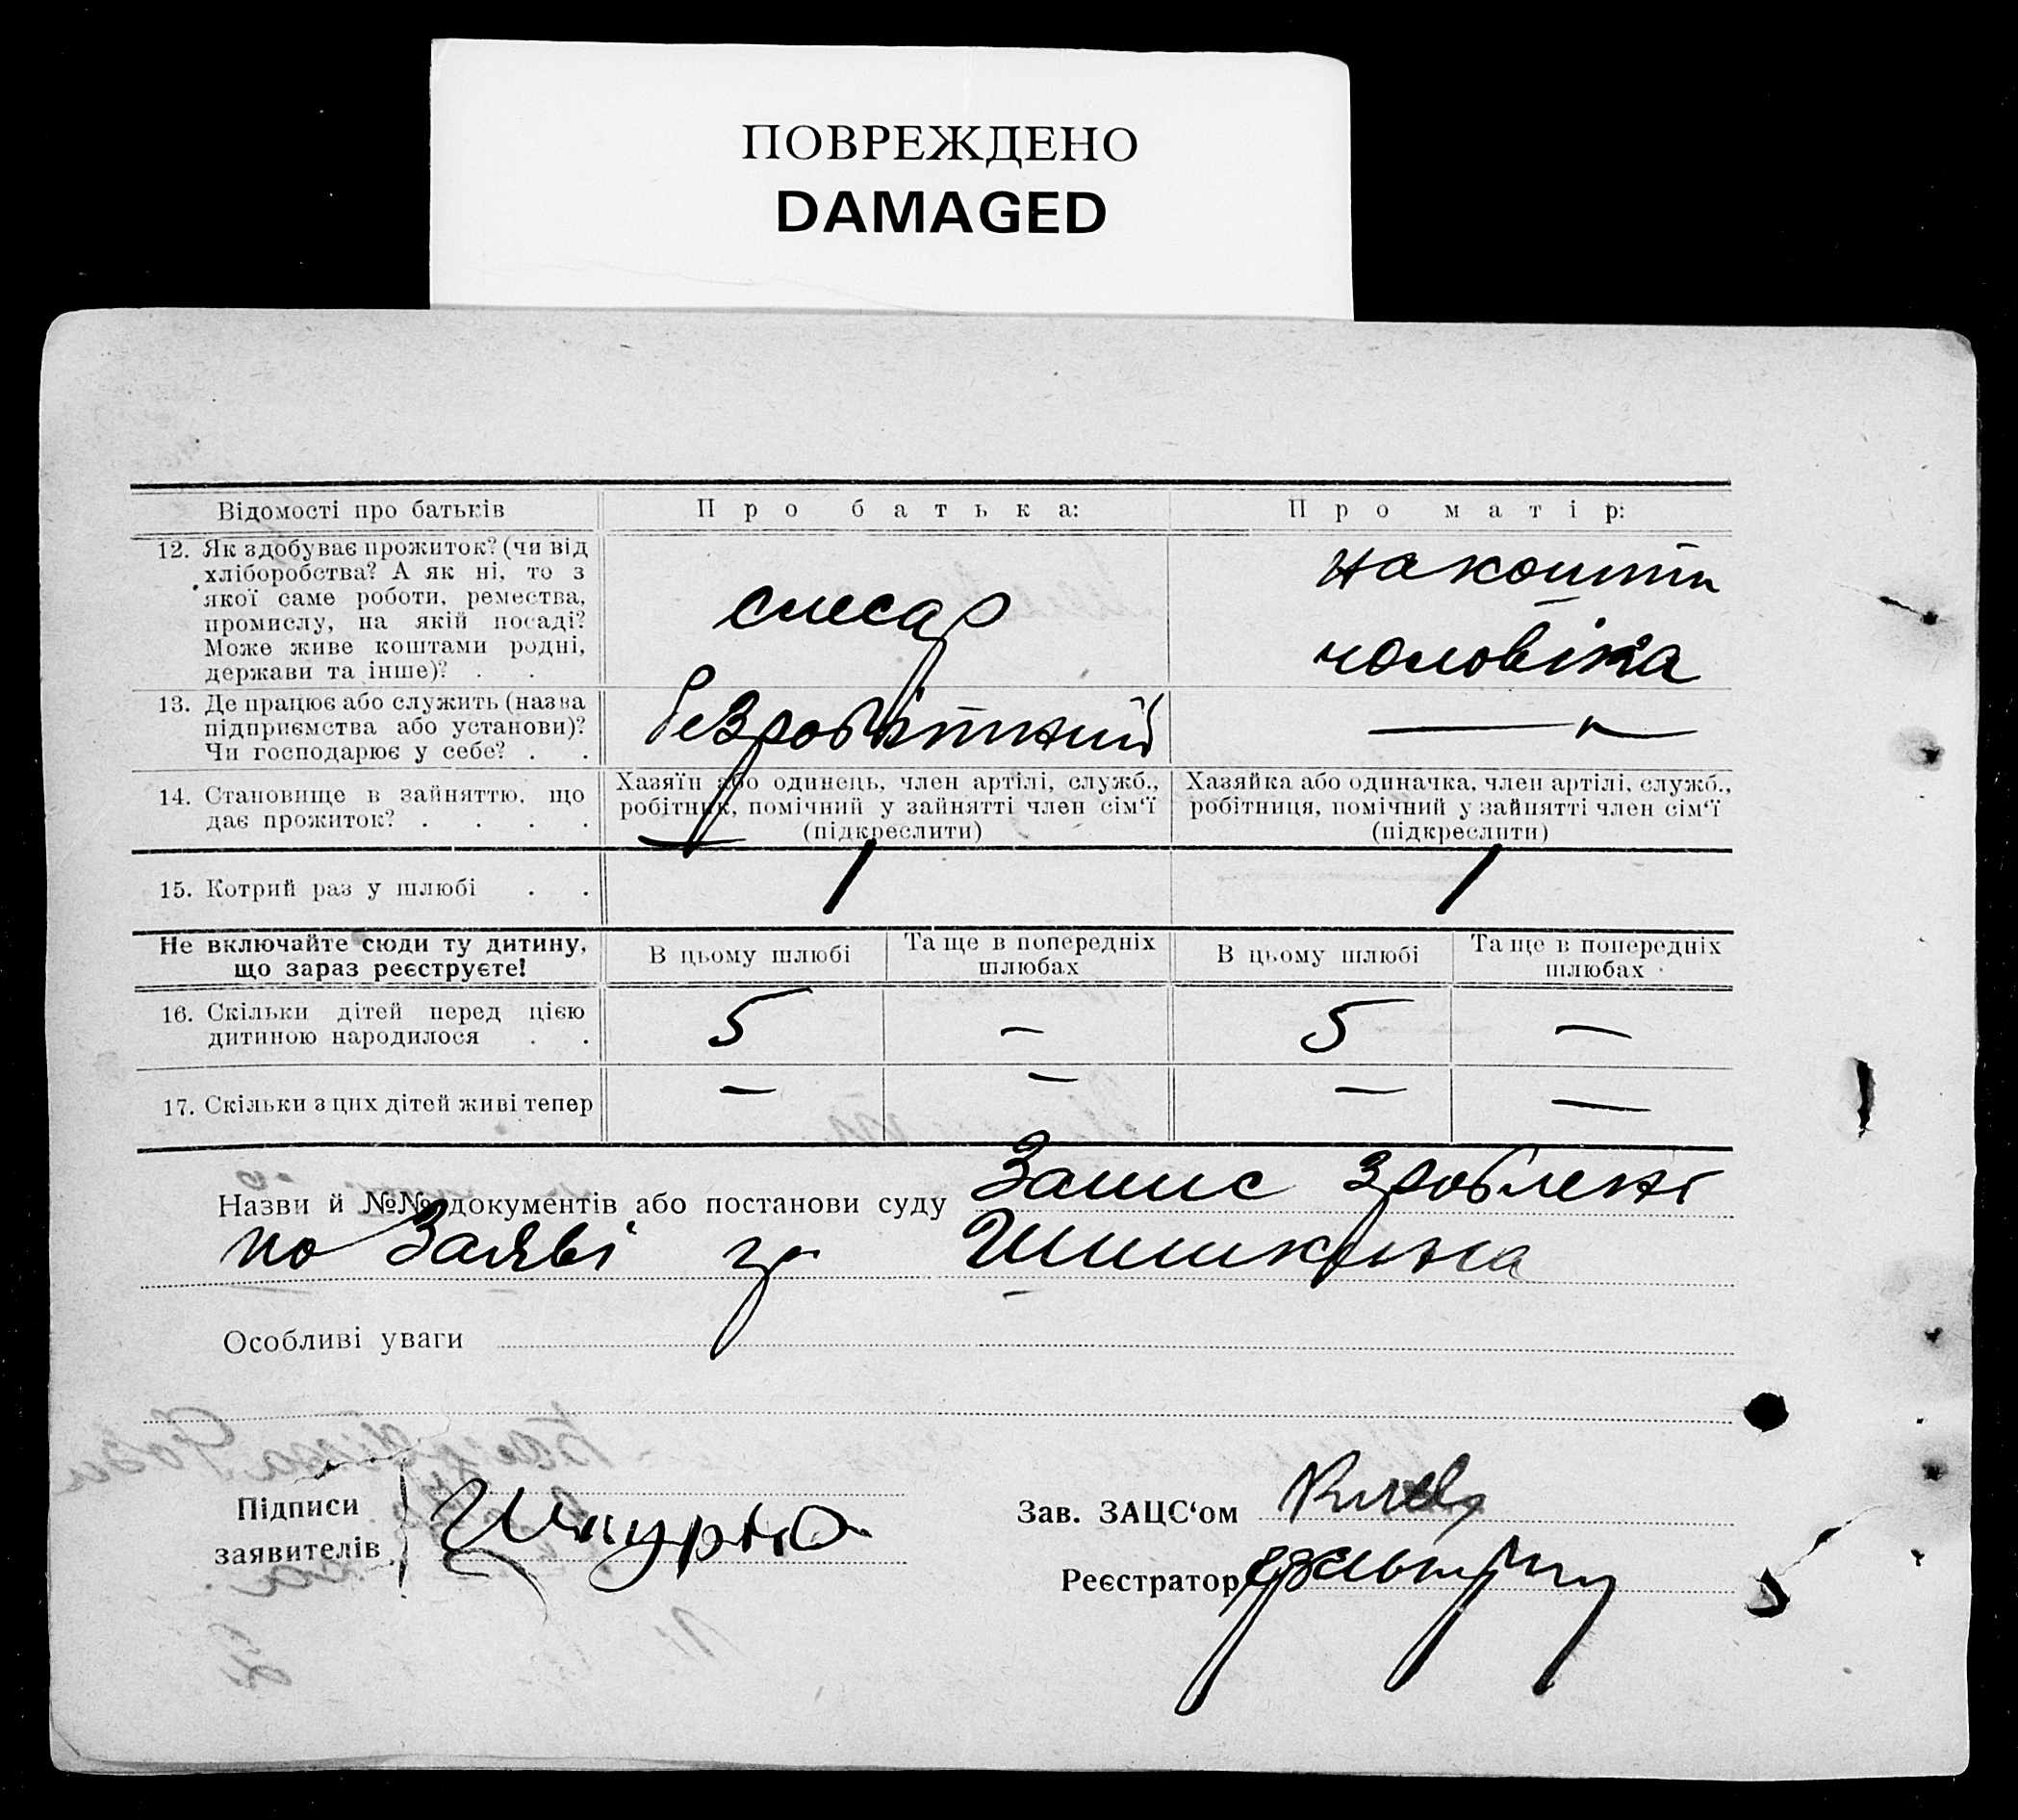 ПОВРЕЖДЕНО
DAMAGED
Відомості про батьків
Про батька:
Про матір:
12. Як здобуває прожиток? (чи від
хліборобства? А як ні, то з
якої саме роботи, ремества,
промислу, на якій посаді?
Може живе коштами родні,
держави та інше)? . .
слесар
на кошти
чоловіка
13. Де працює або служить (назва
підприємства або установи)?
Чи господарює у себе? . .
безробітний
14. Становище в зайняттю, що
дає прожиток? . . . .
Хазяїн або одинець, член артілі, служб.,
робітник, помічний у зайнятті член сім‘ї
(підкреслити)
Хазяйка або одиначка, член артілі, служб.,
робітниця, помічний у зайнятті член сім‘ї
(підкреслити)
15. Котрий раз у шлюбі . .
1
1
Не включайте сюди ту дитину,
що зараз реєструєте!
В цьому шлюбі
Та ще в попередніх
шлюбах
В цьому шлюбі
Та ще в попередніх
шлюбах
16. Скільки дітей перед цією
дитиною народилося . .
5
—
5
—
17. Скільки з цих дітей живі тепер
—
—
—
—
Назви й №№ документів або постанови суду Запис зроблені
по Заяві гр Шишкіна
Особливі уваги
Підписи
заявителів
Зав. ЗАЦС‘ом
Реєстратор